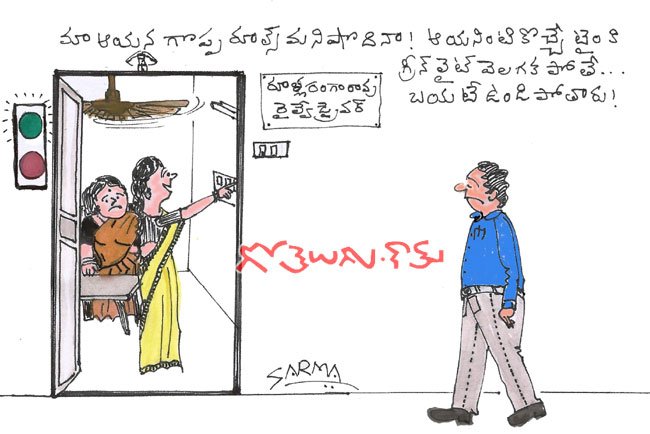 మా ఆయన గొప్ప రూల్స్ మనిషొదినా! ఆయనింటికొచ్చే టైంకి
గ్రీన్ లైట్ వెలగక పోతే...
బయటే ఉండి పోతారు!
రూళ్ల రంగారావు
రైల్వే డ్రైవర్
గోతెలుగు.కామ్
SARMA